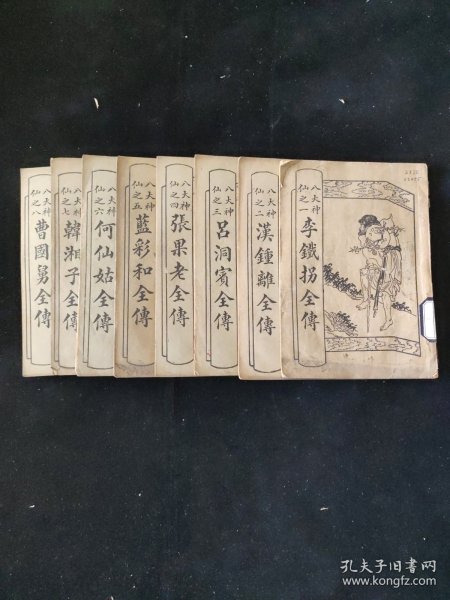 八大神
仙之一
李鐵拐全傳
八大神
仙之二
漢鍾離全傳
八大神
仙之三
呂洞賓全傳
八大神
仙之四
張果老全傳
八大神
仙之五
藍彩和全傳
八大神
仙之六
何仙姑全傳
八大神
仙之七
韓湘子全傳
八大神
仙之八
曹國舅全傳
孔夫子旧书网
www.kongfz.com